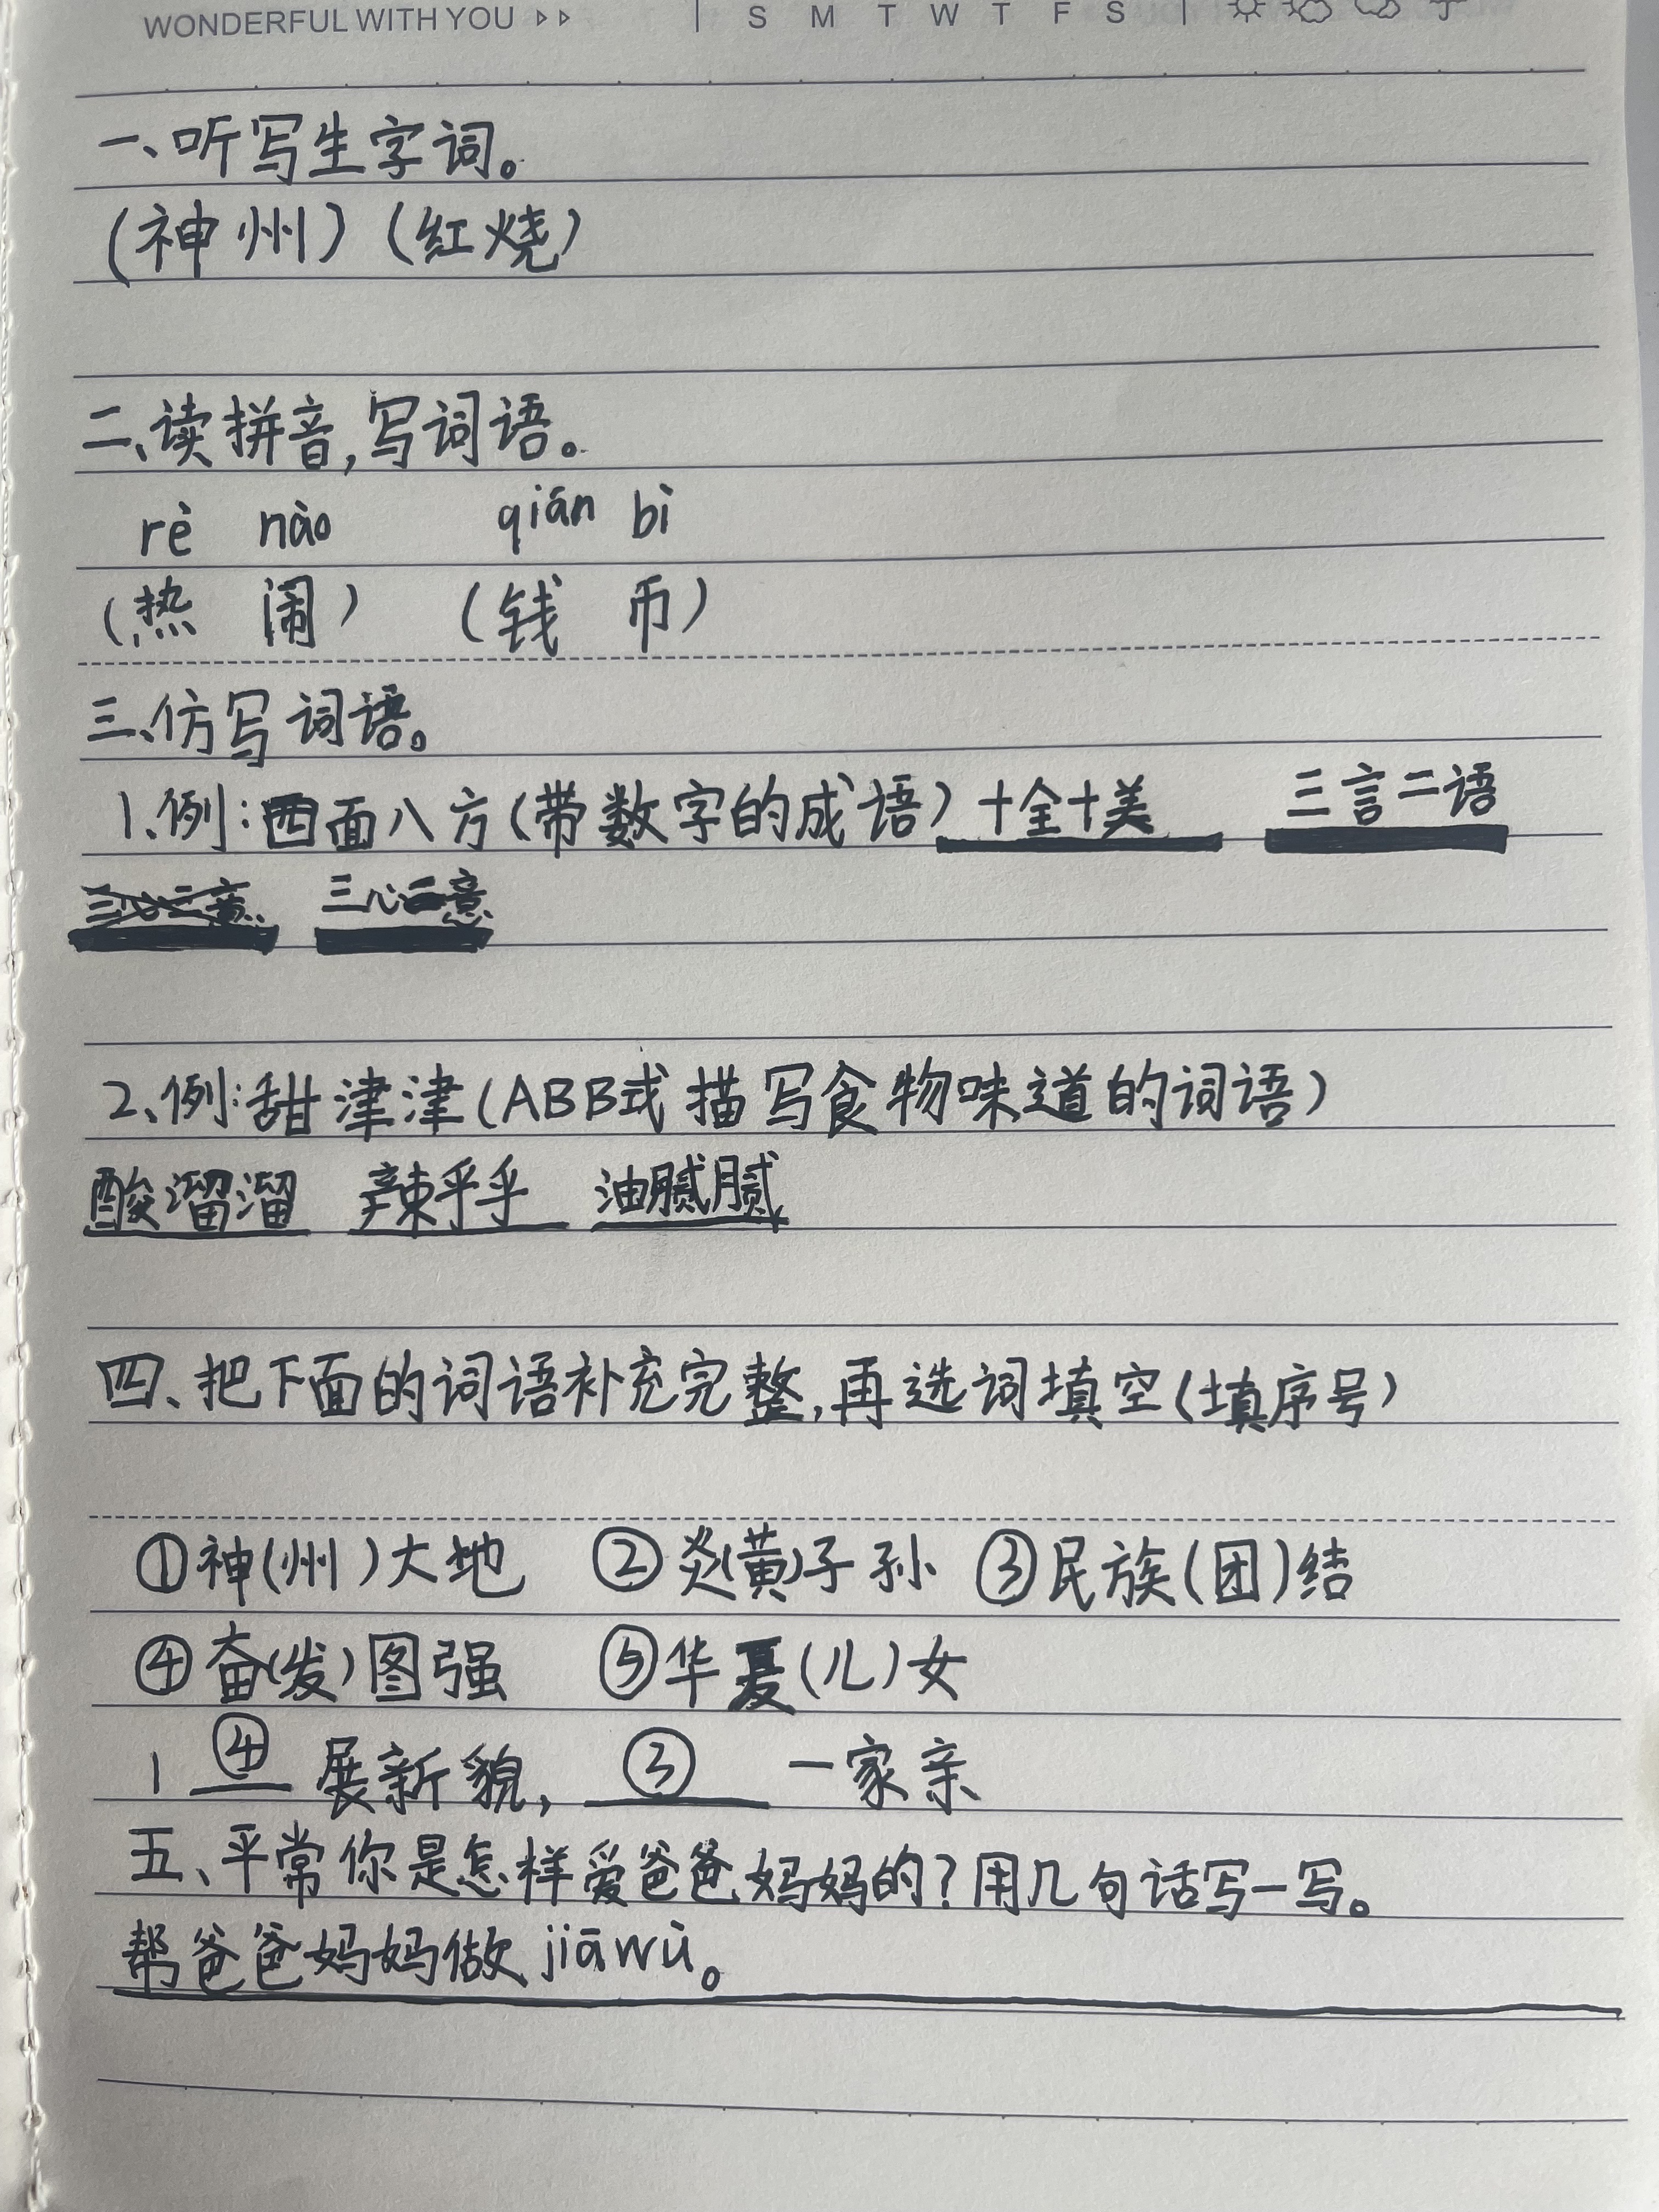 WONDERFUL WITH YOU S M T W T F S
一、听写生字词。
(神州)(红烧)
二、读拼音,写词语。
rè nào qián bì
(热闹) (钱币)
三、仿写词语。
1、例:四面八方(带数字的成语) 十全十美 三言二语
三心二意 三心二意
2、例:甜津津(ABB式描写食物味道的词语)
酸溜溜 辣乎乎 油腻腻
四、把下面的词语补充完整,再选词填空(填序号)
①神(州)大地 ②炎(黄)子孙 ③民族(团)结
④奋(发)图强 ⑤华夏(儿)女
1 ④ 展新貌, ③ 一家亲
五、平常你是怎样爱爸爸妈妈的?用几句话写一写。
帮爸爸妈妈做jiāwù。